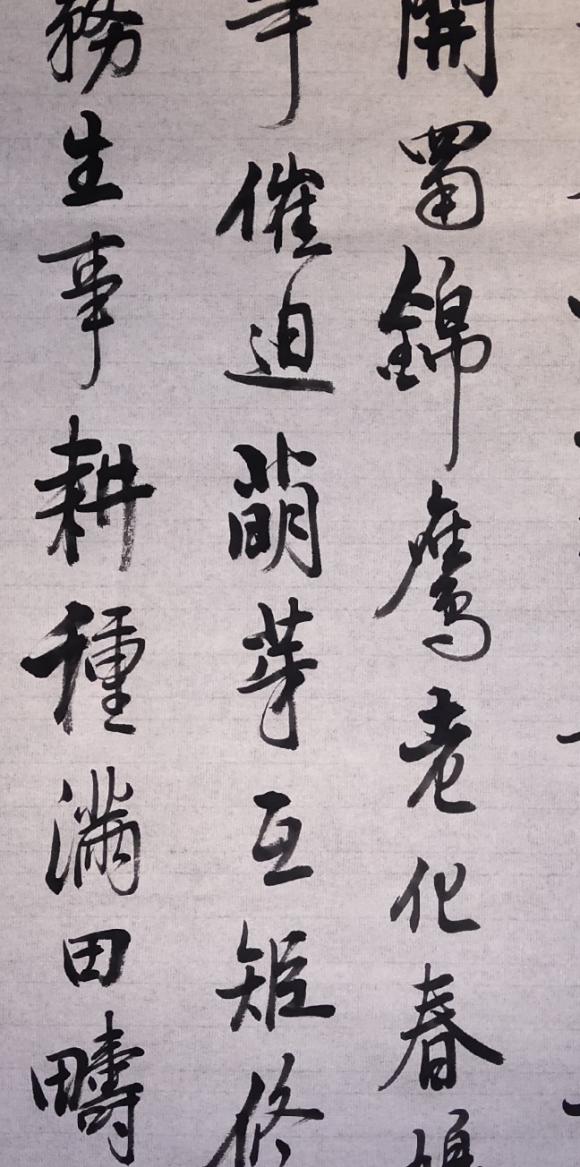 開蜀錦鷹老化春
催迫萌芽互矩
務生事耕種滿田疇